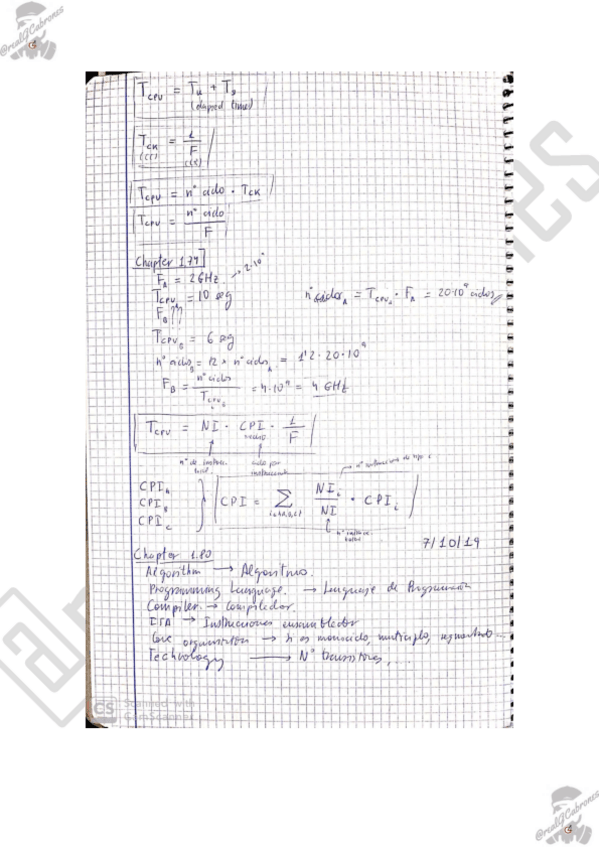 @realGCabrones
T_CPU = T_u + T_s
(elapsed time)
T_CK = 1/F
T_CPU = nº ciclo · T_CK
T_CPU = nº ciclo / F
Chapter 1.74
F_A = 2GHz → 2·10⁹
T_CPU_A = 10 seg
nº ciclos_A = T_CPU_A · F_A = 20·10⁹ ciclos
F_B??
T_CPU_B = 6 seg
nº ciclos_B = 1'2 × nº ciclos_A = 1'2·20·10⁹
F_B = nº ciclos / T_CPU_B = 4·10⁹ = 4 GHz
T_CPU = NI · CPI · 1/F
medio
nº de instruc. total
ciclo por instrucción
nº instrucciones de tipo i
CPI_A
CPI_B
CPI_C
CPI = Σ NI_i/NI · CPI_i
7/10/19
Chapter 1.80
Algorithm → Algoritmo.
Programming Language. → Lenguaje de Programación
Compiler. → Compilador.
ISA → Instrucciones ensamblador
Core organisation → si es monociclo, multiciclo, segmentado...
Technology → Nº transistores, ...
CS Scanned with
CamScanner
@realGCabrones